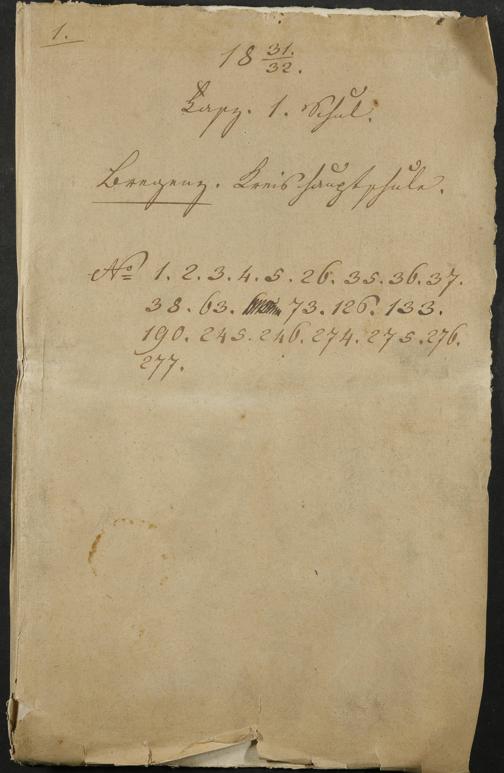 1.
18 31./32.
Fasz. 1. Schul.
Bregenz. Kreishauptschule.
No 1. 2. 3. 4. 5. 26. 35. 36. 37.
38. 63. 73. 126. 133.
190. 245. 246. 274. 275. 276.
277.